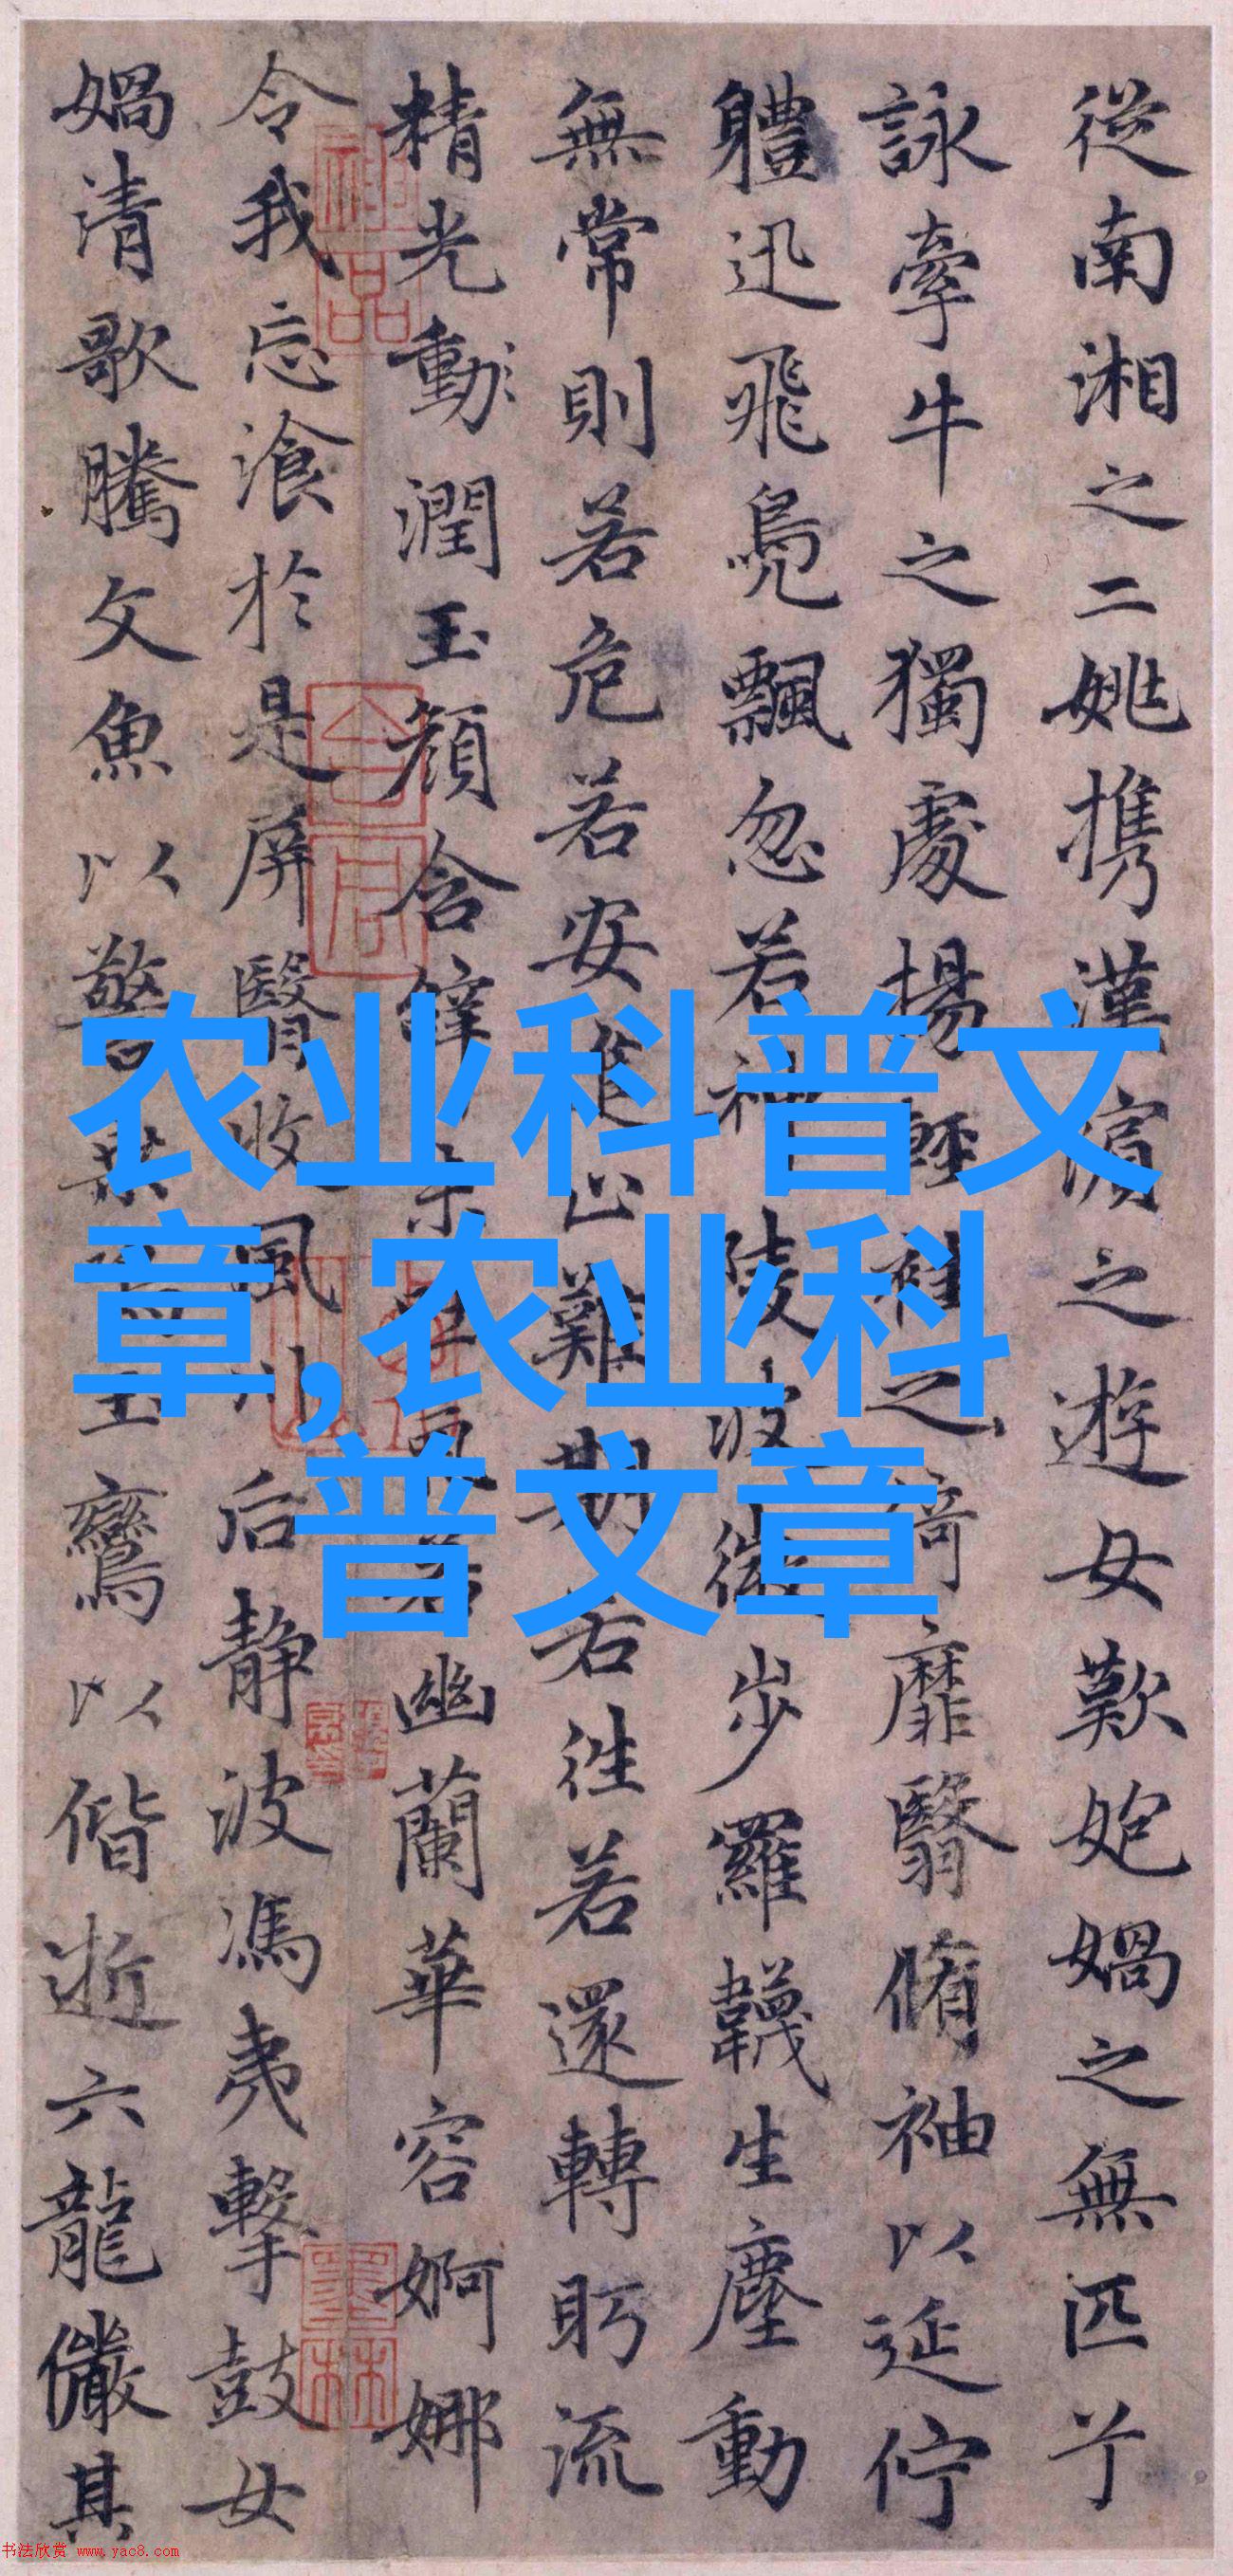 從南湘之二姚携漢濱之遊女歎媧之無匹兮
詠牽牛之獨處揚輕袿之猗靡翳脩袖以延佇
軆迅飛鳧飄忽若神陵波微步羅韈生塵動
無常則若危若安進止難期若往若還轉眄流
精光動潤玉顏含辭未吐氣若幽蘭華容婀娜
令我忘飡於是屏翳收風川后靜波馮夷擊鼓女
媧清歌騰文魚以警乘鳴玉鸞以偕逝六龍儼其
神品
墨林
农业科普文
章,农业科
普文章
书法欣赏 www.yac8.com